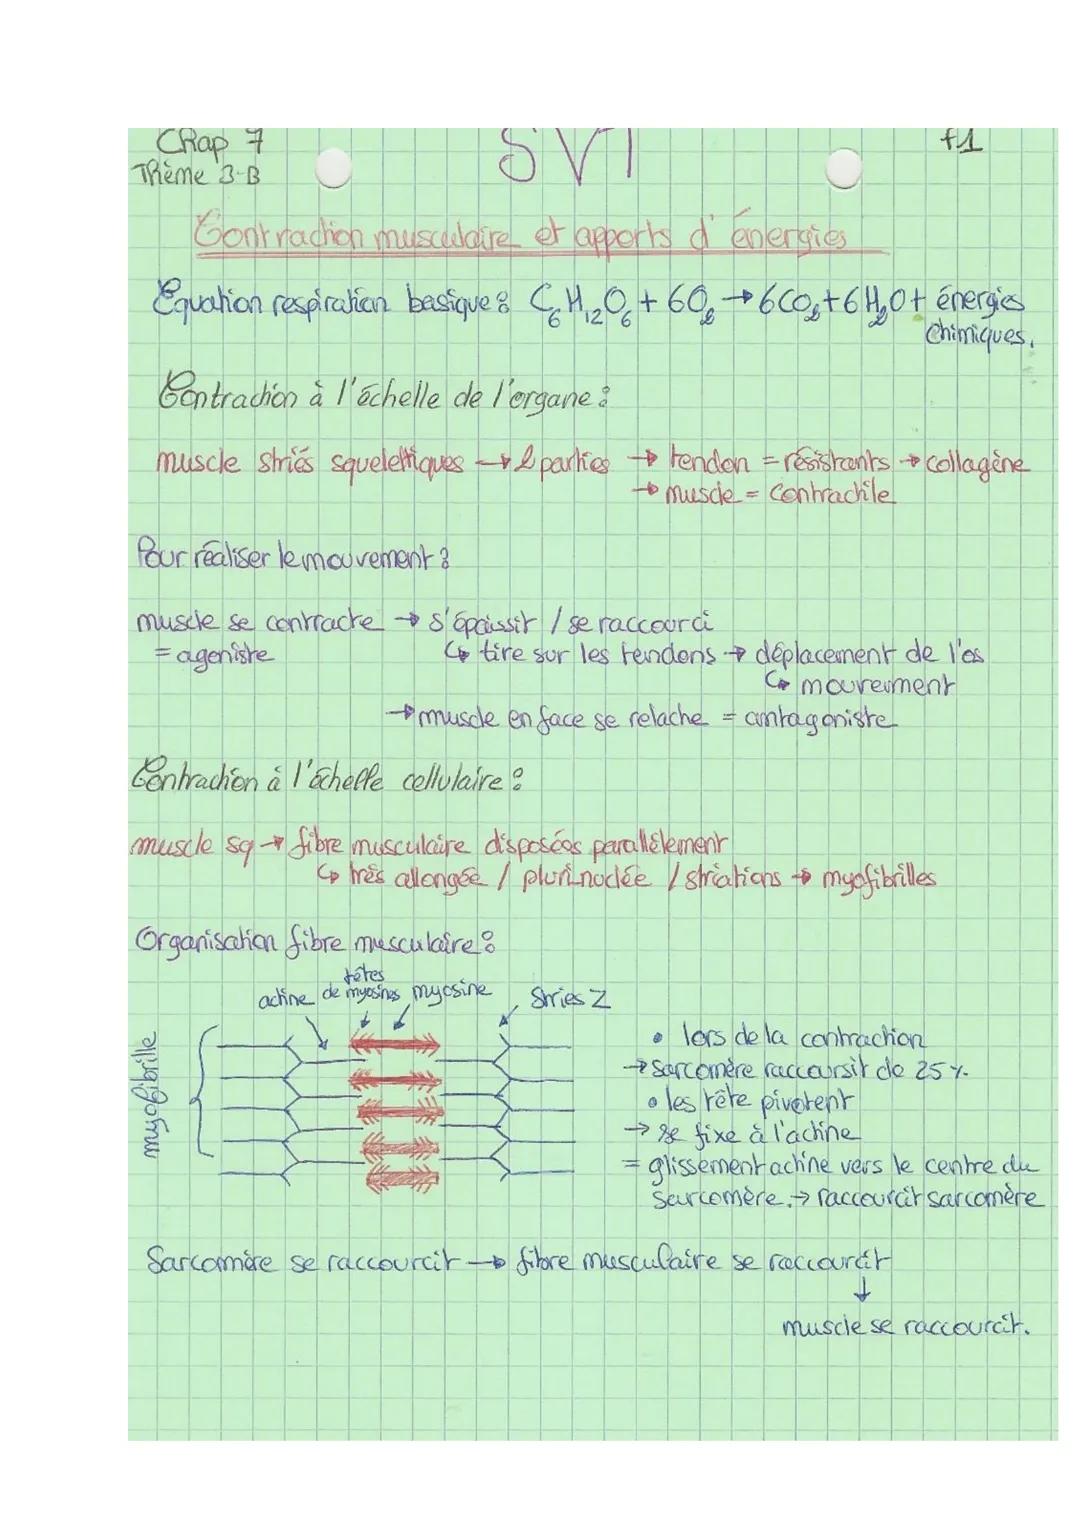 Chap 7
SVT
f1
Thème 3-B
Contraction musculaire et apports d'énergies
Equation respiration basique : C6H12O6 + 6O2 → 6CO2 + 6H2O + énergies
chimiques.
Contraction à l'échelle de l'organe :
muscle striés squelettiques → 2 parties → tendon = résistants → collagène
→ muscle = contractile
Pour réaliser le mouvement :
muscle se contracte → s'épaissit / se raccourci
= agoniste ↳ tire sur les tendons → déplacement de l'os
↳ mouvement
→ muscle en face se relache = antagoniste
Contraction à l'échelle cellulaire :
muscle sq → fibre musculaire disposées parallèlement
↳ très allongée / plurinuclée / striations → myofibrilles
Organisation fibre musculaire :
actine
têtes
de myosines
myosine
Stries Z
myofibrille
• lors de la contraction
→ sarcomère raccoursit de 25 %.
• les tête pivotent
→ se fixe à l'actine
= glissement actine vers le centre du
sarcomère. → raccourcit sarcomère
Sarcomère se raccourcit → fibre musculaire se raccourcit
↓
muscle se raccourcit.